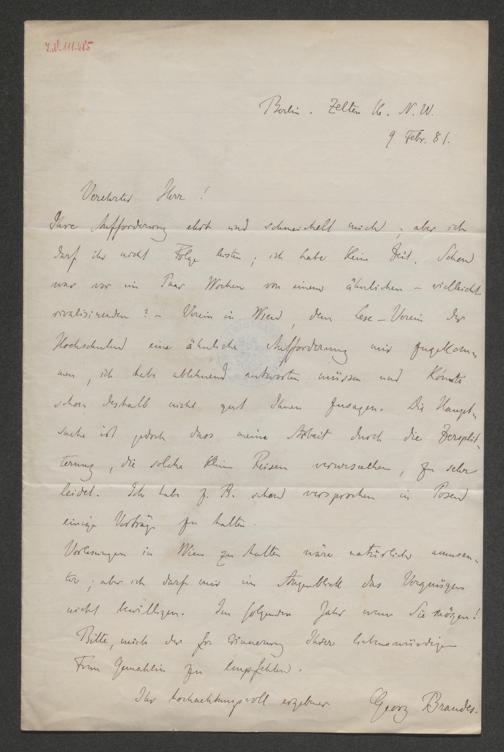 I.N. 111.485
Berlin. Zelten N. W.
9 Febr. 81.
Verehrter Herr!
Ihre Aufforderung ehrt und schmeichelt mich, aber ich
darf ihr nicht Folge leisten; ich habe keine Zeit. Schon
war vor ein Paar Wochen von einem ähnlichen – vielleicht
rivalisirenden? – Verein in Wien, dem Lese-Verein der
Hochschulen eine ähnliche Aufforderung mir zugekom-
men, ich habe ablehnend antworten müssen und könnte
schon deshalb nicht gut Ihnen zusagen. Die Haupt-
sache ist jedoch dass meine Arbeit durch die Zersplit-
terung, die solche kleine Reisen verursachen, zu sehr
leidet. Ich habe z. B. schon versprochen in Posen
einige Vorträge zu halten.
Vorlesungen in Wien zu halten wäre natürlich amusan-
ter; aber ich darf mir im Augenblick das Vergnügen
nicht bewilligen. Im folgenden Jahr wenn Sie mögen!
Bitte, mich der Erinnerung Ihrer liebenswürdigen
Frau Gemahlin zu empfehlen.
Ihr hochachtungsvoll ergebener Georg Brandes.